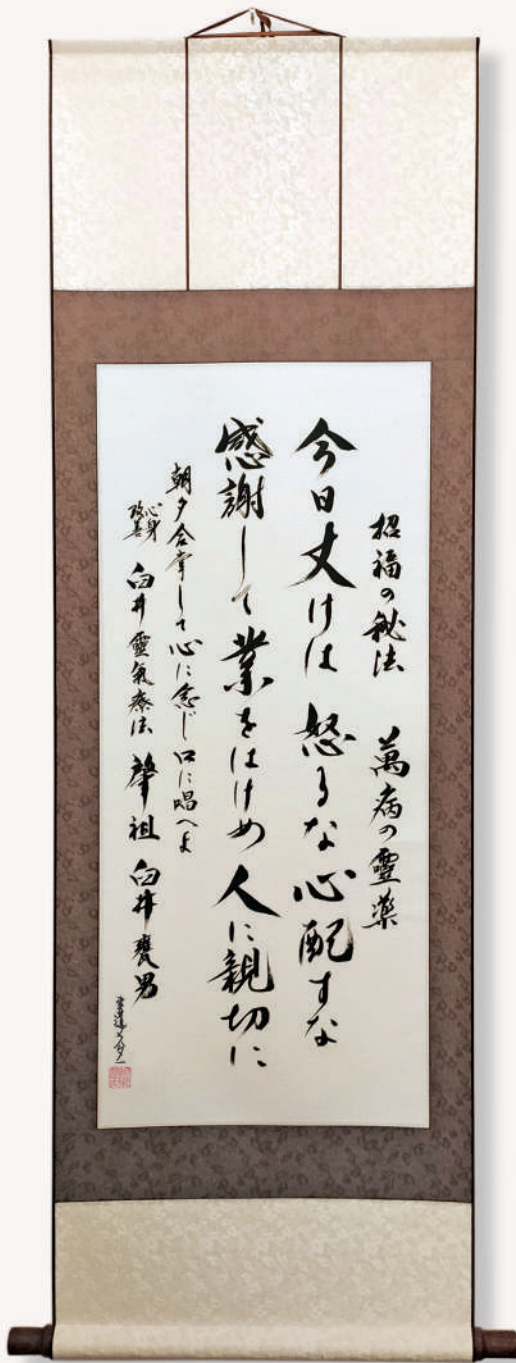 招福の秘法 萬病の靈薬
今日丈けは 怒るな心配すな
感謝して 業をはけめ 人に親切に
朝夕合掌して心に念じ口に唱へよ
心身改善 臼井靈氣療法 肇祖 臼井甕男